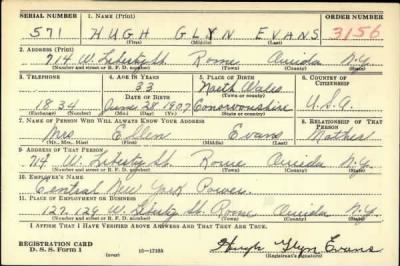 SERIAL NUMBER 1. NAME (Print) ORDER NUMBER
571 HUGH GLYN EVANS 3156
(First) (Middle) (Last)
2. ADDRESS (Print)
714 W. Liberty St. Rome Oneida N.Y.
(Number and street or R. F. D. number) (Town) (County) (State)
3. TELEPHONE 4. AGE IN YEARS 5. PLACE OF BIRTH 6. COUNTRY OF CITIZENSHIP
33 North Wales
DATE OF BIRTH (Town or county)
1834 June 28 1907 U.S.A.
(Exchange) (Number) (Mo.) (Day) (Yr.) (State or country)
7. NAME OF PERSON WHO WILL ALWAYS KNOW YOUR ADDRESS 8. RELATIONSHIP OF THAT PERSON
Mrs Ellen Evans Mother
(Mr., Mrs., Miss) (First) (Middle) (Last)
9. ADDRESS OF THAT PERSON
714 W. Liberty St. Rome Oneida N.Y.
(Number and street or R. F. D. number) (Town) (County) (State)
10. EMPLOYER'S NAME
Central New York Power
11. PLACE OF EMPLOYMENT OR BUSINESS
127-129 W Liberty St. Rome Oneida N.Y.
(Number and street or R. F. D. number) (Town) (County) (State)
I AFFIRM THAT I HAVE VERIFIED ABOVE ANSWERS AND THAT THEY ARE TRUE.
REGISTRATION CARD
D. S. S. Form 1 (over) 16—17105 Hugh Glyn Evans
(Registrant's signature)